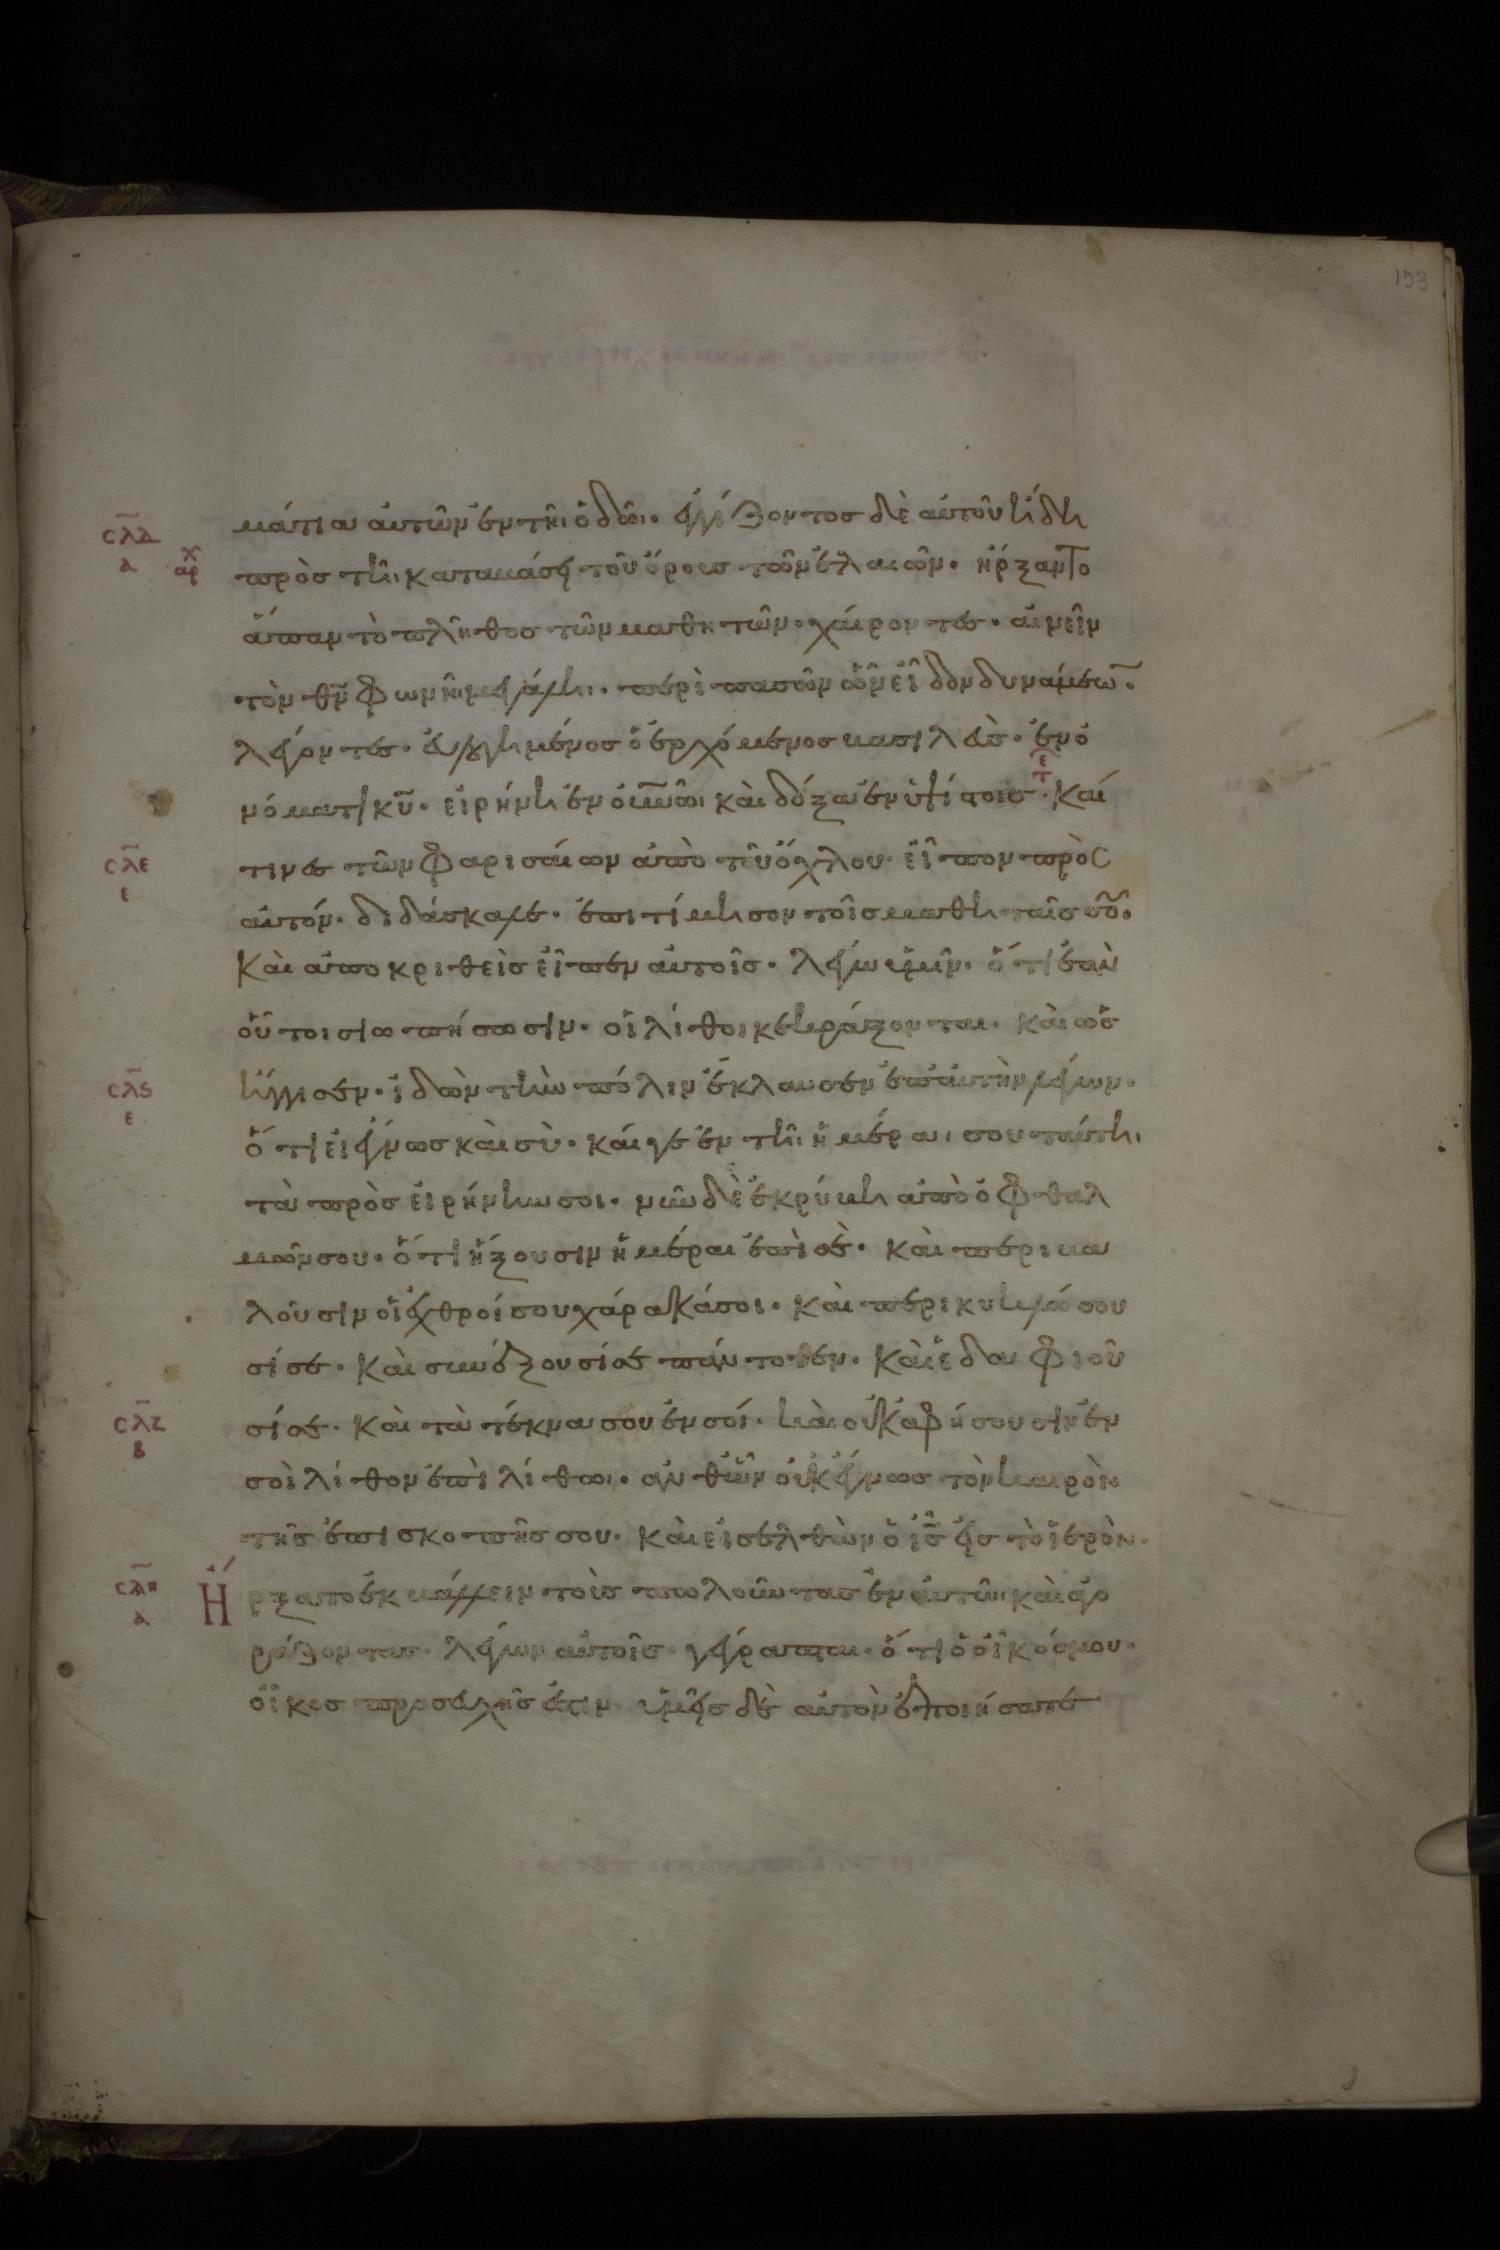 193
σλδ
α
χ
αρ
μάτια αὐτῶν ἐν τῆι ὁδῶι· ἐγγίζοντος δὲ αὐτοῦ ἤδη
πρὸς τῆι καταβάσει τοῦ ὄρους τῶν ἐλαιῶν· ἤρξαντο
ἅπαν τὸ πλῆθος τῶν μαθητῶν· χαίροντες· αἰνεῖν
τὸν θν̅ φωνῆι μεγάληι· περὶ πασῶν ὧν εἶδον δυνάμεω̅·
λέγοντες· εὐλογημένος ὁ ἐρχόμενος βασιλεὺς· ἐν ὀ
νόματι κυ̅· εἰρήνη ἐν οὐνῶι καὶ δόξα ἐν ὑψίστοις· Καί
σλε
ε
τινες τῶν φαρισαίων ἀπὸ τοῦ ὄχλου· εἶπον πρὸς
αὐτόν· διδάσκαλε· ἐπιτίμησον τοῖς μαθηταῖς σοῦ·
Καὶ ἀποκριθεὶς εἶπεν αὐτοῖς· λέγω ὑμῖν· ὅτι ἐὰν
οὗτοι σιωπήσωσιν· οἱ λίθοι κεκράξονται· καὶ ὡς
σλς
ε
ἤγγισεν· ἰδὼν τὴν πόλιν ἔκλαυσεν ἐπ' αὐτὴν λέγων·
ὅτι εἰ ἔγνως καὶ σὺ· καί γε ἐν τῆι ἡμέραι σου ταύτηι
τὰ πρὸς εἰρήνην σοι· νῦν δὲ ἐκρύβη ἀπὸ ὀφθαλ
μῶν σου· ὅτι ἥξουσιν ἡμέραι ἐπὶ σὲ· καὶ περιβα
λοῦσιν οἱ ἐχθροί σου χάρακά σοι· καὶ περικυκλώσου
σί σε· καὶ συνέξουσί σε πάντοθεν· καὶ ἐδαφιοῦ
σλζ
β
σί σε· καὶ τὰ τέκνα σου ἐν σοί· καὶ οὐκ ἀφήσουσιν ἐν
σοὶ λίθον ἐπὶ λίθωι· ἀνθ' ὧν οὐκ ἔγνως τὸν καιρὸν
τῆς ἐπισκοπῆς σου· καὶ εἰσελθὼν ὁ ις̅ εἰς τὸ ἱερὸν·
σλη
α
Ἤρξατο ἐκβάλλειν τοὺς πωλοῦντας ἐν αὐτῶι καὶ ἀγο
ράζοντας· λέγων αὐτοῖς· γέγραπται· ὅτι ὁ οἶκός μου·
οἶκος προσευχῆς ἐστιν ὑμεῖς δὲ αὐτὸν ἐποιήσατε